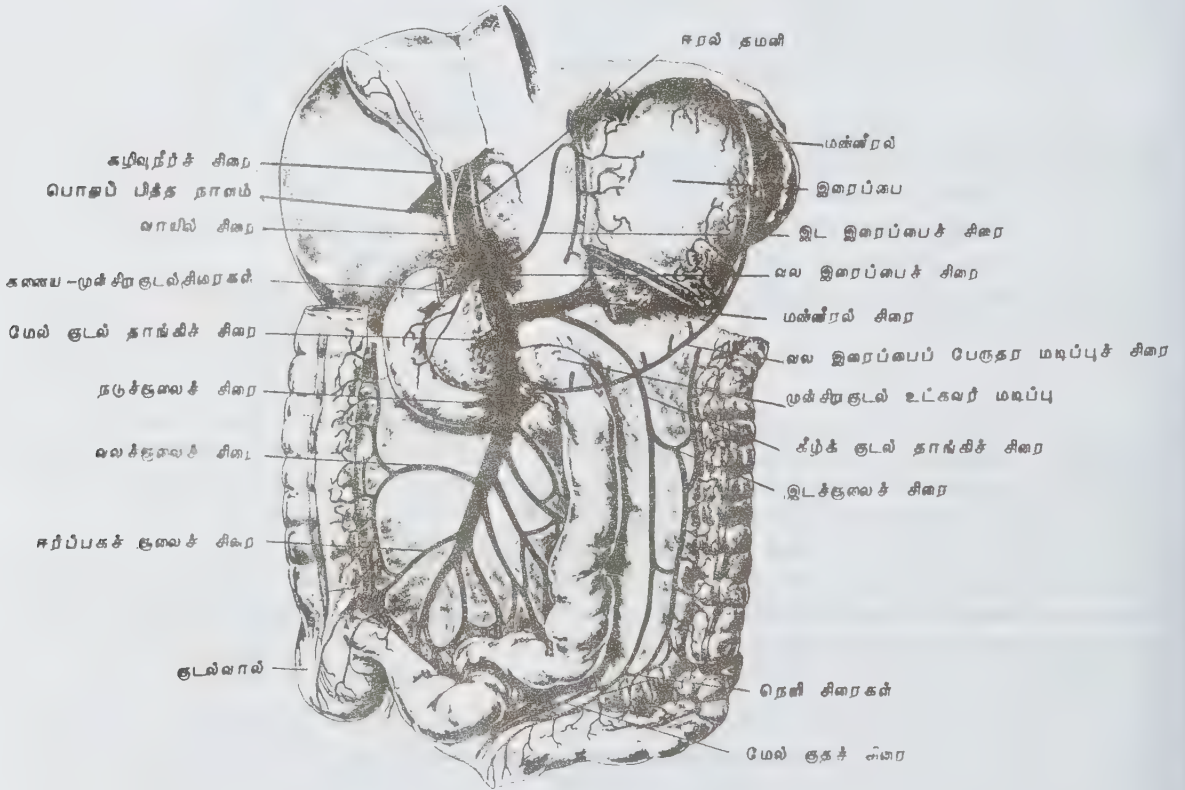 ஈரல் தமனி
கழிவுநீர்ச் சிரை
பொதுப் பித்த நாளம்
வாயில் சிரை
கணைய-முன்சிறுகுடல்சிரைகள்
மேல் குடல் தாங்கிச் சிரை
நடுச்சூலைச் சிரை
வலச்சூலைச் சிரை
ஈர்ப்பகச் சூலைச் சிரை
குடல்வால்
மண்ணீரல்
இரைப்பை
இட இரைப்பைச் சிரை
வல இரைப்பைச் சிரை
மண்ணீரல் சிரை
வல இரைப்பைப் பேருதர மடிப்புச் சிரை
முன்சிறுகுடல் உட்கவர் மடிப்பு
கீழ்க் குடல் தாங்கிச் சிரை
இடச்சூலைச் சிரை
நெளி சிரைகள்
மேல் குதச் சிரை